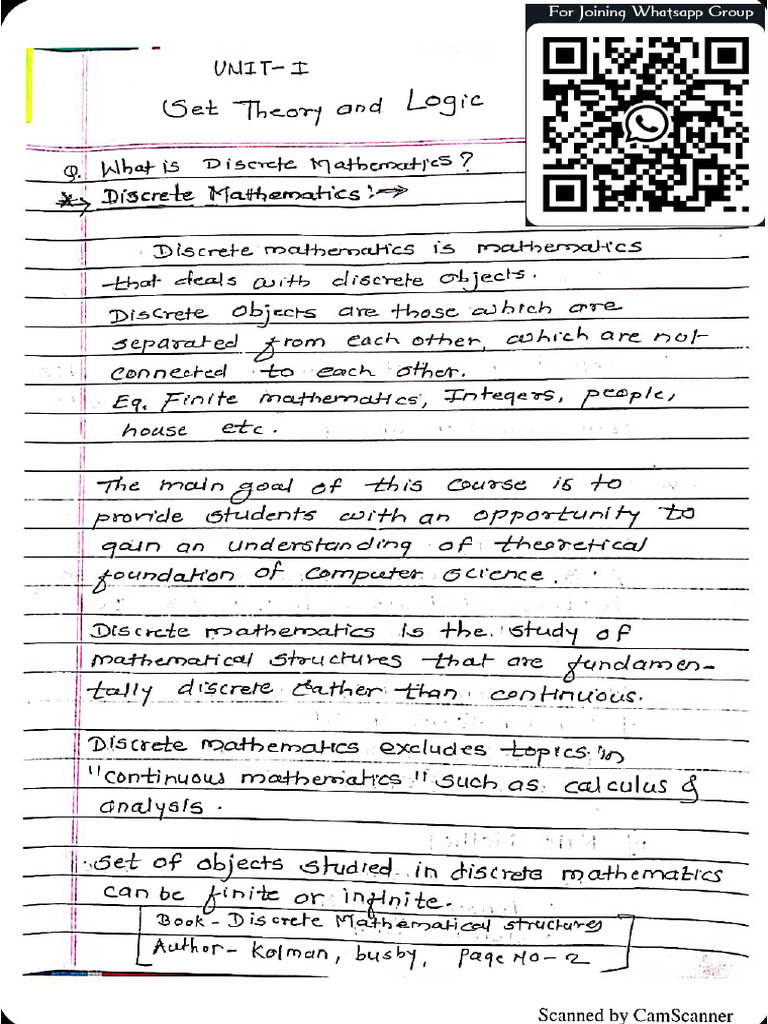 For Joining Whatsapp Group
UNIT-I
Set Theory and Logic
Q. What is Discrete Mathematics?
Discrete Mathematics:→
Discrete mathematics is mathematics
that deals with discrete objects.
Discrete objects are those which are
separated from each other, which are not
connected to each other.
Eg. Finite mathematics, Integers, people,
house etc.
The main goal of this course is to
provide students with an opportunity to
gain an understanding of theoretical
foundation of computer science.
Discrete mathematics is the study of
mathematical structures that are fundamen-
tally discrete rather than continuous.
Discrete mathematics excludes topics in
"continuous mathematics" such as calculus &
analysis.
Set of objects studied in discrete mathematics
can be finite or infinite.
Book - Discrete Mathematical structures
Author - Kolman, busby, Page No - 2
Scanned by CamScanner